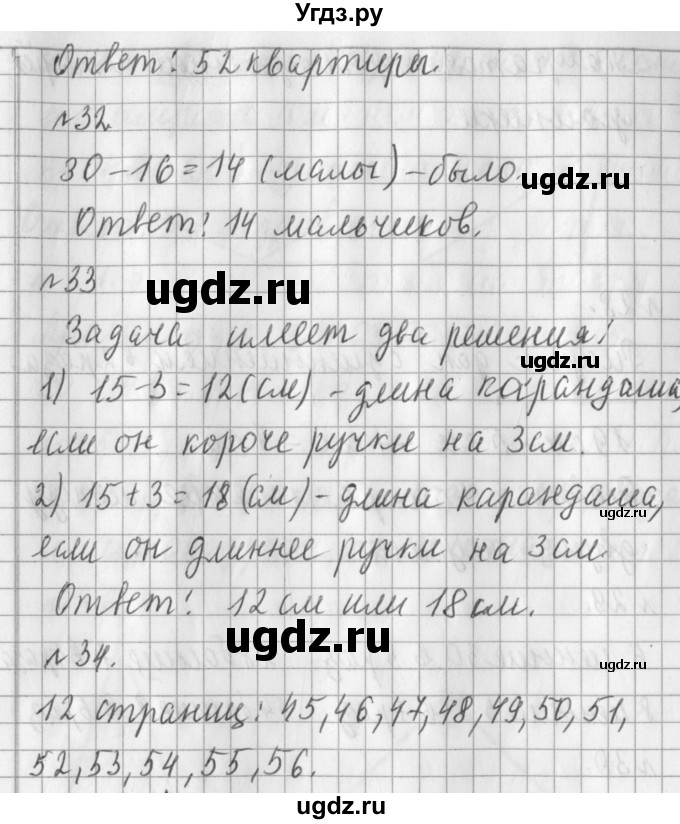 Угдз.ру
Ответ: 52 квартиры.
№32
30-16=14 (малы) - было.
ugdz.ru
Ответ: 14 мальчиков.
№33
ugdz.ru
Задача имеет два решения:
ugdz.ru
1) 15-3=12(см) - длина карандаша,
если он короче ручки на 3см.
2) 15+3=18(см) - длина карандаша,
ugdz.ru
если он длиннее ручки на 3см.
Ответ: 12см или 18см.
ugdz.ru
№34.
ugdz.ru
12 страниц: 45,46,47,48,49,50,51,
52,53,54,55,56.
ugdz.ru
ugdz.ru